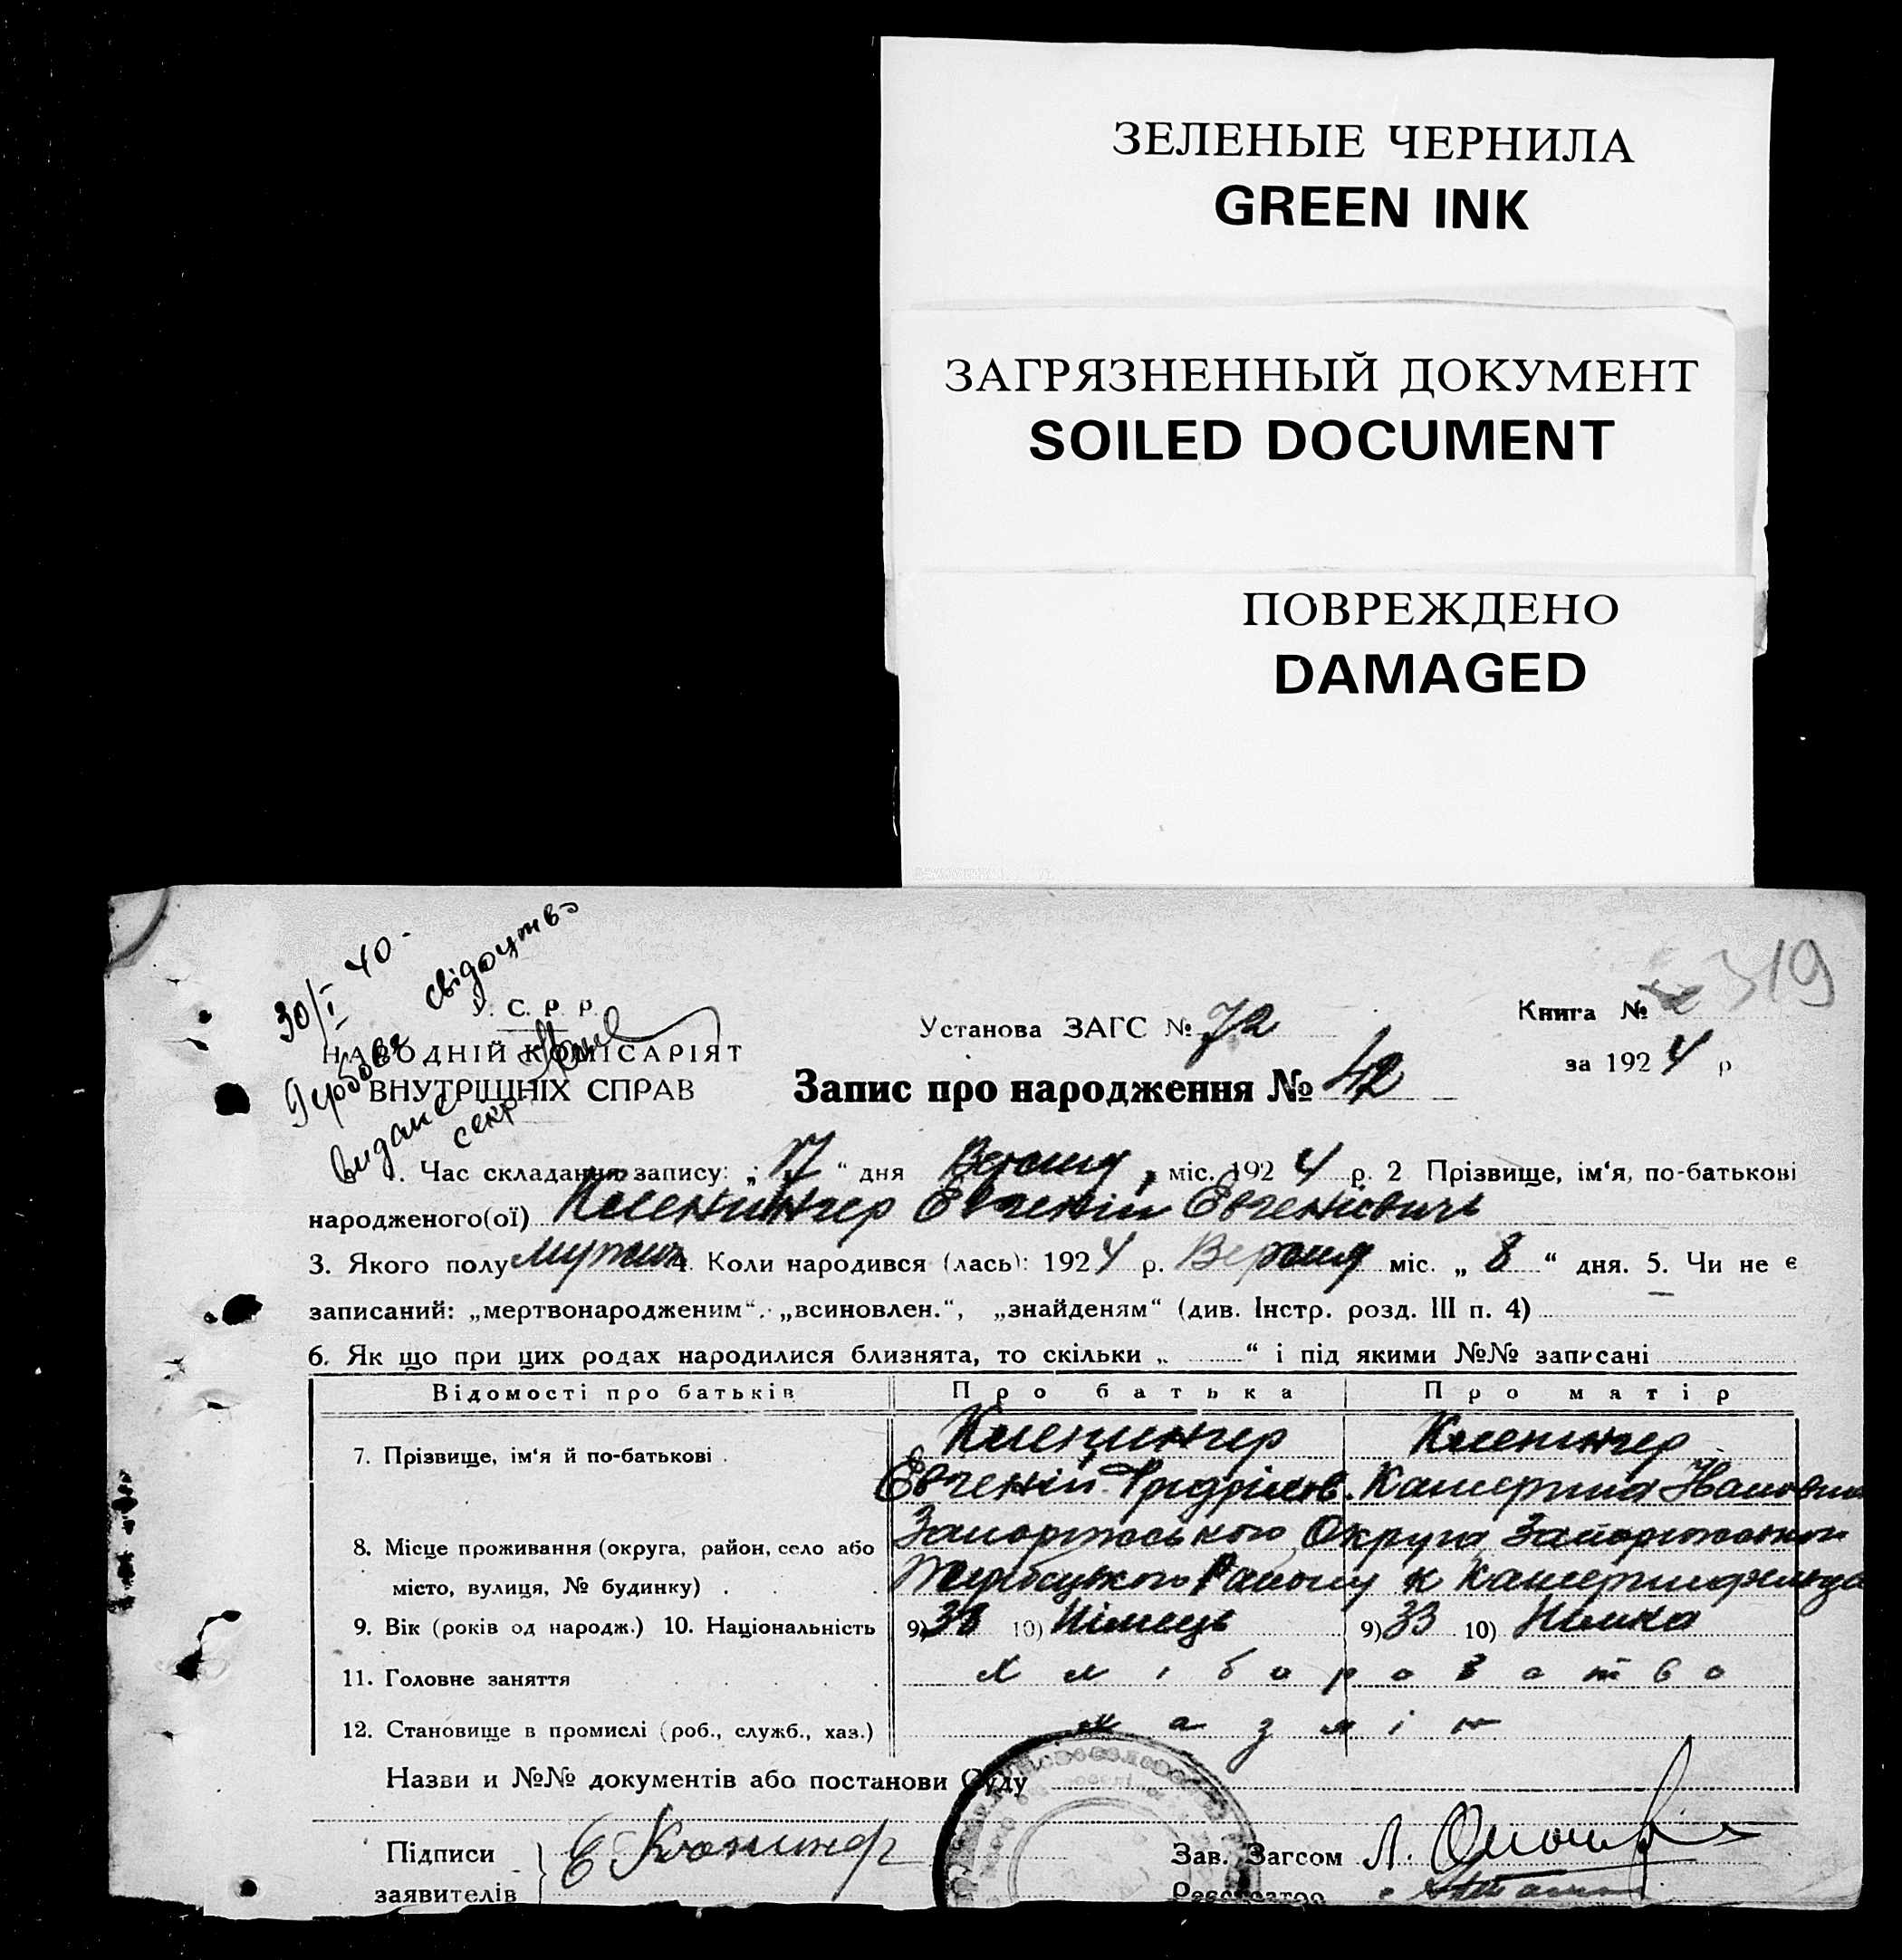 ЗЕЛЕНЫЕ ЧЕРНИЛА
GREEN INK
ЗАГРЯЗНЕННЫЙ ДОКУМЕНТ
SOILED DOCUMENT
ПОВРЕЖДЕНО
DAMAGED
30/I 40.
Гербове свідоцтво
видане
секр
319
У. С. Р. Р.
НАРОДНІЙ КОМІСАРІЯТ
ВНУТРІШНІХ СПРАВ
Установа ЗАГС № 72
Книга №
за 1924 р
Запис про народження № 42
1. Час складання запису: „17“ дня Вересня, міс. 1924 р. 2 Прізвище, ім‘я, по-батькові
народженого(ої) Клененінгер Евгеній Евгеніевичь
3. Якого полу мужчин 4. Коли народився (лась): 1924 р. Вересня міс. „8“ дня. 5. Чи не є
записаний: „мертвонародженим“. „всиновлен.“, „знайденям“ (див. Інстр. розд. III п. 4)
6. Як що при цих родах народилися близнята, то скільки „ “ і під якими №№ записані
Відомості про батьків Про батька Про матір
7. Прізвище, ім‘я й по-батькові
Евгеній Фридріхов. Катерина Івановна
8. Місце проживання (округа, район, село або Запоріжського Округа Запоріжського
місто, вулиця, № будинку) Жеребецького Району к Катеринфельда
9. Вік (років од народж.) 10. Національність 9) 38 10) Німець 9) 33 10) Німка
11. Головне заняття Хліборобство
12. Становище в промислі (роб., служб., хаз.) хазяін
Назви и №№ документів або постанови Суду
Підписи
заявителів
Зав. Загсом Л.
Реєстратор